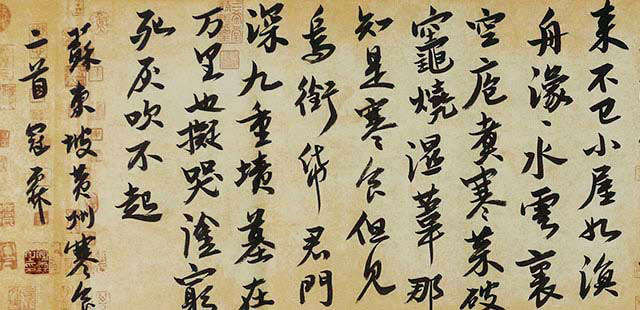 来不已小屋如漁
舟濛〻水雲裏
空庖煮寒菜破
竈燒濕葦那
知是寒食但見
烏銜帋君門
深九重墳墓在
万里也擬哭塗窮
死灰吹不起
蘇東坡黄州寒食
二首 冠